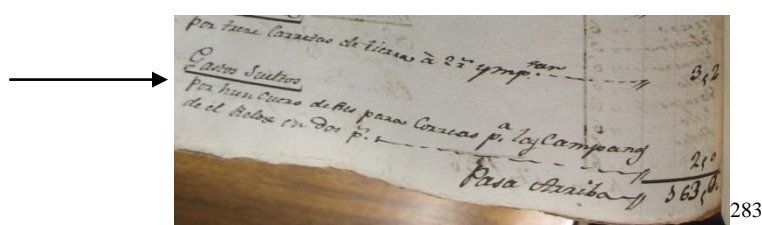 por trese Carretas de tierra à 2 rs ymp.tan 3,2
Gastos Sueltos
Por hun Cuero de Res para Correas p.a las Campanas
de el Relox en dos p.s 2,0
Pasa Arriba 363,0.
283